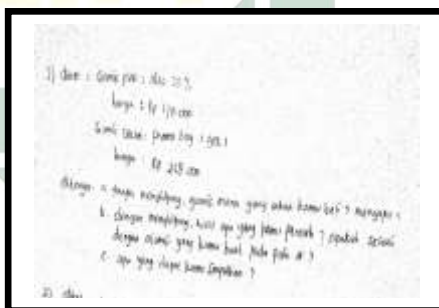 1) dike : Gamis pink : disc 25%
harga : Rp 170.000
Gamis coklat : promo buy 1 get 1
harga : Rp 225.000
Ditanya : a. tanpa menghitung, gamis mana yang akan kamu beli ? mengapa ?
b. dengan menghitung, hasil apa yang kamu peroleh ? apakah sesuai
dengan alasan yang kamu buat pada poin a ?
c. apa yang dapat kamu simpulkan ?
2)